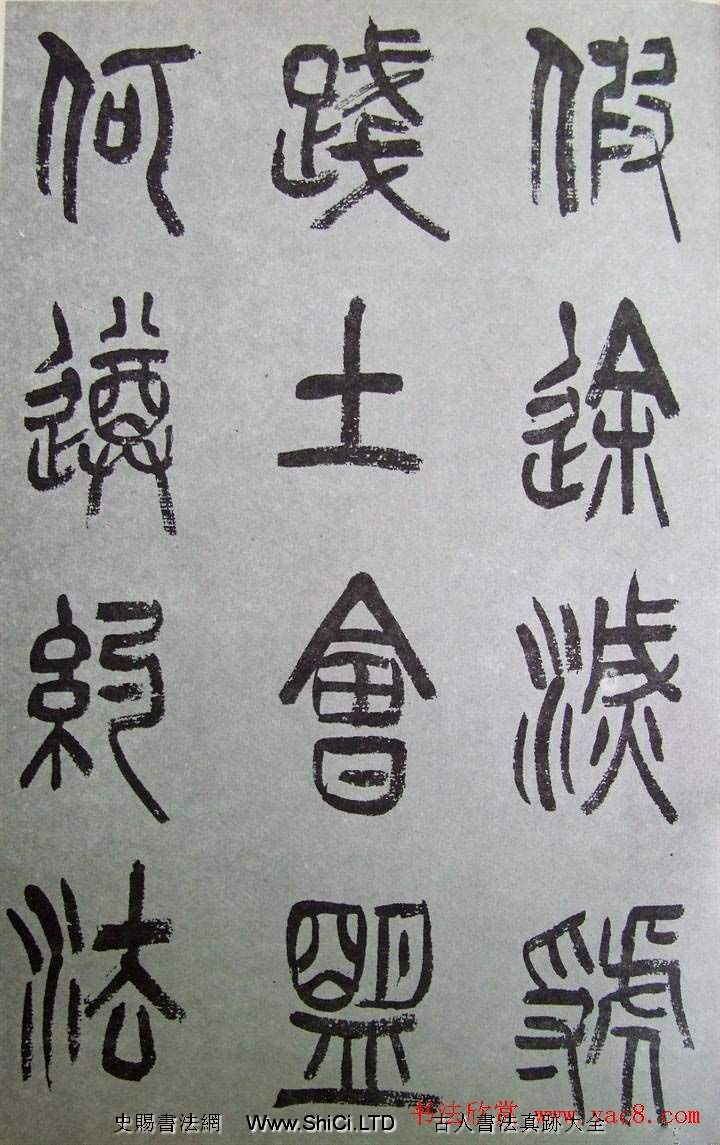 假途滅虢
踐土會盟
何遵約法
史賜書法網 Www.ShiCi.LTD 古人書法真跡大全
书法欣赏 www.yac8.com